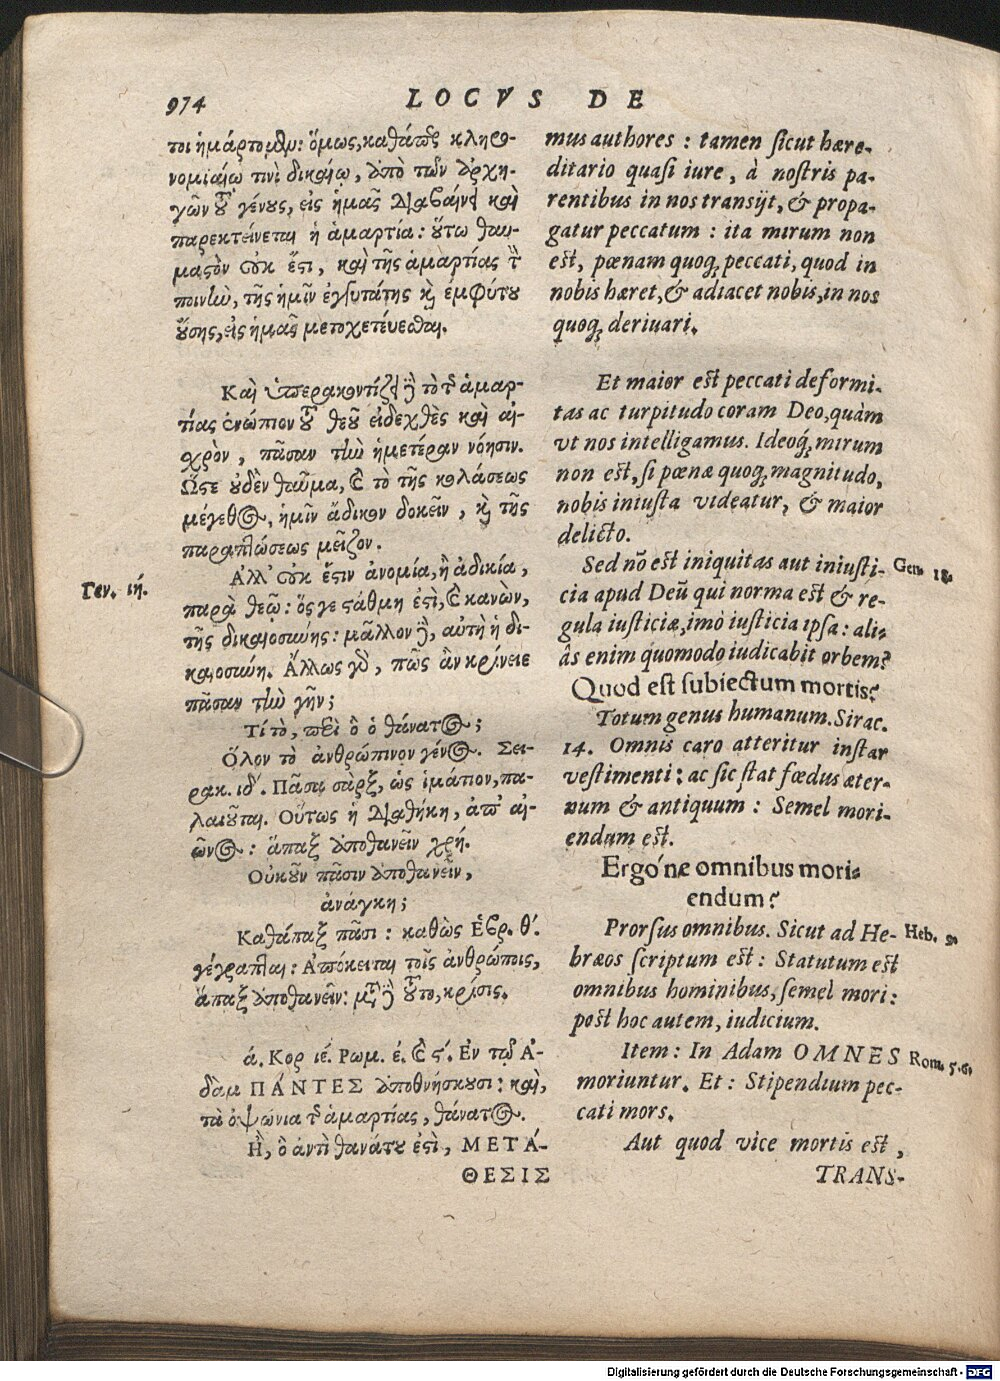 974
LOCVS DE
τοι ἡμάρτομεν: ὅμως, καθάπερ κληρο-
νομιαίῳ τινὶ δικαίῳ, ἀπὸ τῶν ἀρχη-
γῶν τοῦ γένους, εἰς ἡμᾶς διαβαίνει καὶ
παρεκτείνεται ἡ ἁμαρτία: οὕτω θαυ-
μαστὸν οὐκ ἔστι, καὶ τῆς ἁμαρτίας τὴν
ποινὴν, τῆς ἡμῖν ἐγγυτάτης καὶ ἐμφύτου
οὔσης, εἰς ἡμᾶς μετοχετεύεσθαι.
Καὶ ὑπερακοντίζει δὲ τὸ τῆς ἁμαρ-
τίας ἐνώπιον τοῦ θεοῦ εἰδεχθὲς καὶ αἰ-
σχρὸν, πᾶσαν τὴν ἡμετέραν νόησιν.
Ὥστε οὐδὲν θαῦμα, καὶ τὸ τῆς κολάσεως
μέγεθος, ἡμῖν ἄδικον δοκεῖν, καὶ τῆς
παραπτώσεως μεῖζον.
Ἀλλ' οὐκ ἔστιν ἀνομία, ἢ ἀδικία,
παρὰ θεῷ: ὅς γε στάθμη ἐστὶ, καὶ κανὼν,
τῆς δικαιοσύνης: μᾶλλον δὲ, αὐτὴ ἡ δι-
καιοσύνη. Ἄλλως γὰρ, πῶς ἂν κρίνειε
πᾶσαν τὴν γῆν;
Τί τὸ, περὶ ὃ ὁ θάνατος;
Ὅλον τὸ ἀνθρώπινον γένος. Σει-
ρακ. ιδ'. Πᾶσα σὰρξ, ὡς ἱμάτιον, πα-
λαιοῦται. Οὕτως ἡ διαθήκη, ἀπ' αἰ-
ῶνος: ἅπαξ ἀποθανεῖν χρή.
Οὐκοῦν πᾶσιν ἀποθανεῖν,
ἀνάγκη;
Καθάπαξ πᾶσι: καθὼς Ἑβρ. θ'.
γέγραπται: Ἀπόκειται τοῖς ἀνθρώποις,
ἅπαξ ἀποθανεῖν: μετὰ δὲ τοῦτο, κρίσις.
ά. Κορ ιέ. Ρωμ. έ. καὶ ϛ'. Ἐν τῷ Ἀ-
δὰμ ΠΆΝΤΕΣ ἀποθνήσκουσι: καὶ,
τὰ ὀψώνια τῆς ἁμαρτίας, θάνατος.
Ἢ, ὃ ἀντὶ θανάτου ἐστὶ, ΜΕΤΆ-
ΘΕΣΙΣ
Γεν. ιή.
mus authores : tamen ſicut hære-
ditario quaſi iure, à noſtris pa-
rentibus in nos tranſijt, & propa-
gatur peccatum : ita mirum non
eſt, pœnam quoq; peccati, quod in
nobis hæret, & adiacet nobis, in nos
quoq; deriuari.
Et maior eſt peccati deformi-
tas ac turpitudo coram Deo, quàm
vt nos intelligamus. Ideoq́; mirum
non eſt, ſi pœnæ quoq; magnitudo,
nobis iniuſta videatur, & maior
delicto.
Sed nõ eſt iniquitas aut iniuſti-
cia apud Deũ qui norma eſt & re-
gula iuſticiæ, imò iuſticia ipſa : ali-
âs enim quomodo iudicabit orbem?
Quod eſt ſubiectum mortis?
Totum genus humanum. Sirac.
14. Omnis caro atteritur inſtar
veſtimenti : ac ſic ſtat fœdus æter-
num & antiquum : Semel mori-
endum eſt.
Ergóne omnibus mori-
endum?
Prorſus omnibus. Sicut ad He-
bræos ſcriptum eſt : Statutum eſt
omnibus hominibus, ſemel mori :
poſt hoc autem, iudicium.
Item : In Adam OMNES
moriuntur. Et : Stipendium pec-
cati mors.
Aut quod vice mortis eſt,
TRANS-
Gen. 18.
Heb. 9.
Rom. 5.6.
Digitalisierung gefördert durch die Deutsche Forschungsgemeinschaft - DFG